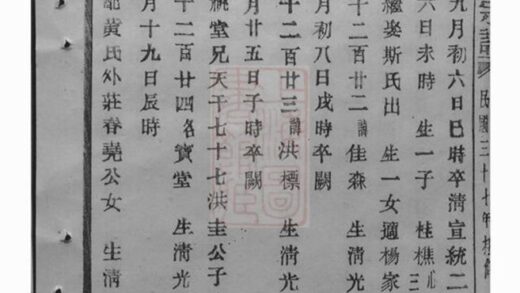 民國三十七年
九月初六日巳時卒清宣統二
六日未時 生一子 桂樵
繼娶斯氏出 生一女適楊家
十二百廿二 諱 佳森 生清光
月初八日戌時卒闕
十二百廿三 諱 洪標 生清光
月廿五日子時卒闕
統堂兄天干七十七洪圭公子
十二百廿四名寶堂 生清光
月十九日辰時
配黄氏外莊春堯公女 生清